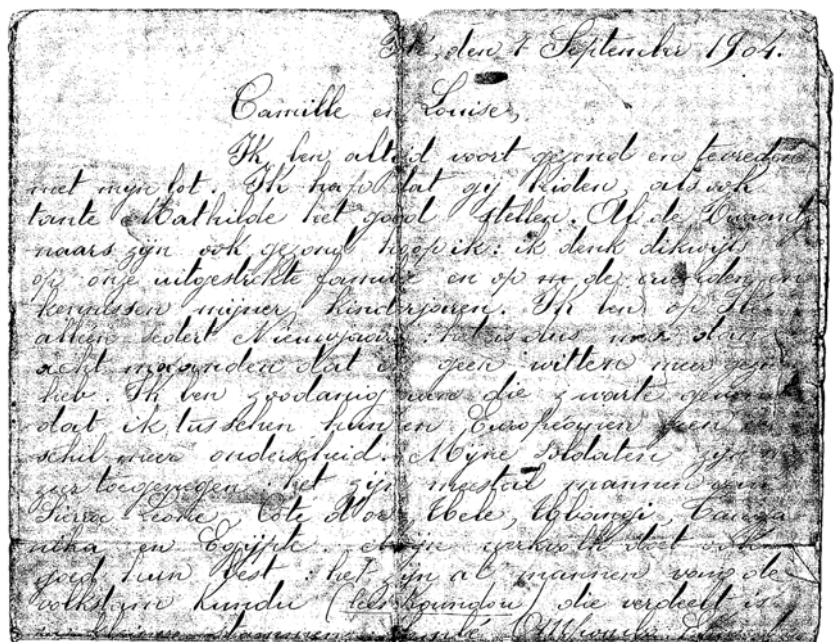 den 7 September 1904.
Camille en Louise,
Ik ben altijd voort gezond en tevreden
met mijn lot. Ik hoop dat gij beiden, als ook
tante Mathilde het goed stellen. Al de
naars zijn ook gezond hoop ik: ik denk dikwijls
op onze uitgestrekte familie en op de vrienden en
kennissen mijner kinderjaren. Ik ben op
alleen sedert Nieuwjaar: het is dus meer dan
acht maanden dat ik geen witten meer gezien
heb. Ik ben zoodanig aan die zwarte
dat ik tusschen hun en Europeanen geen
schil meer onderscheid. Mijne soldaten zijn
zeer toegenegen: het zijn meestal mannen van
Sierra Leone, Côte d'or, Uele, Ubangi, Tanga
nika en Egijpte. Mijn werkvolk doet ook
goed hun best: het zijn al mannen van de
volkstam Kundu (lees Koundou) die verdeeld is
in kleine stammen